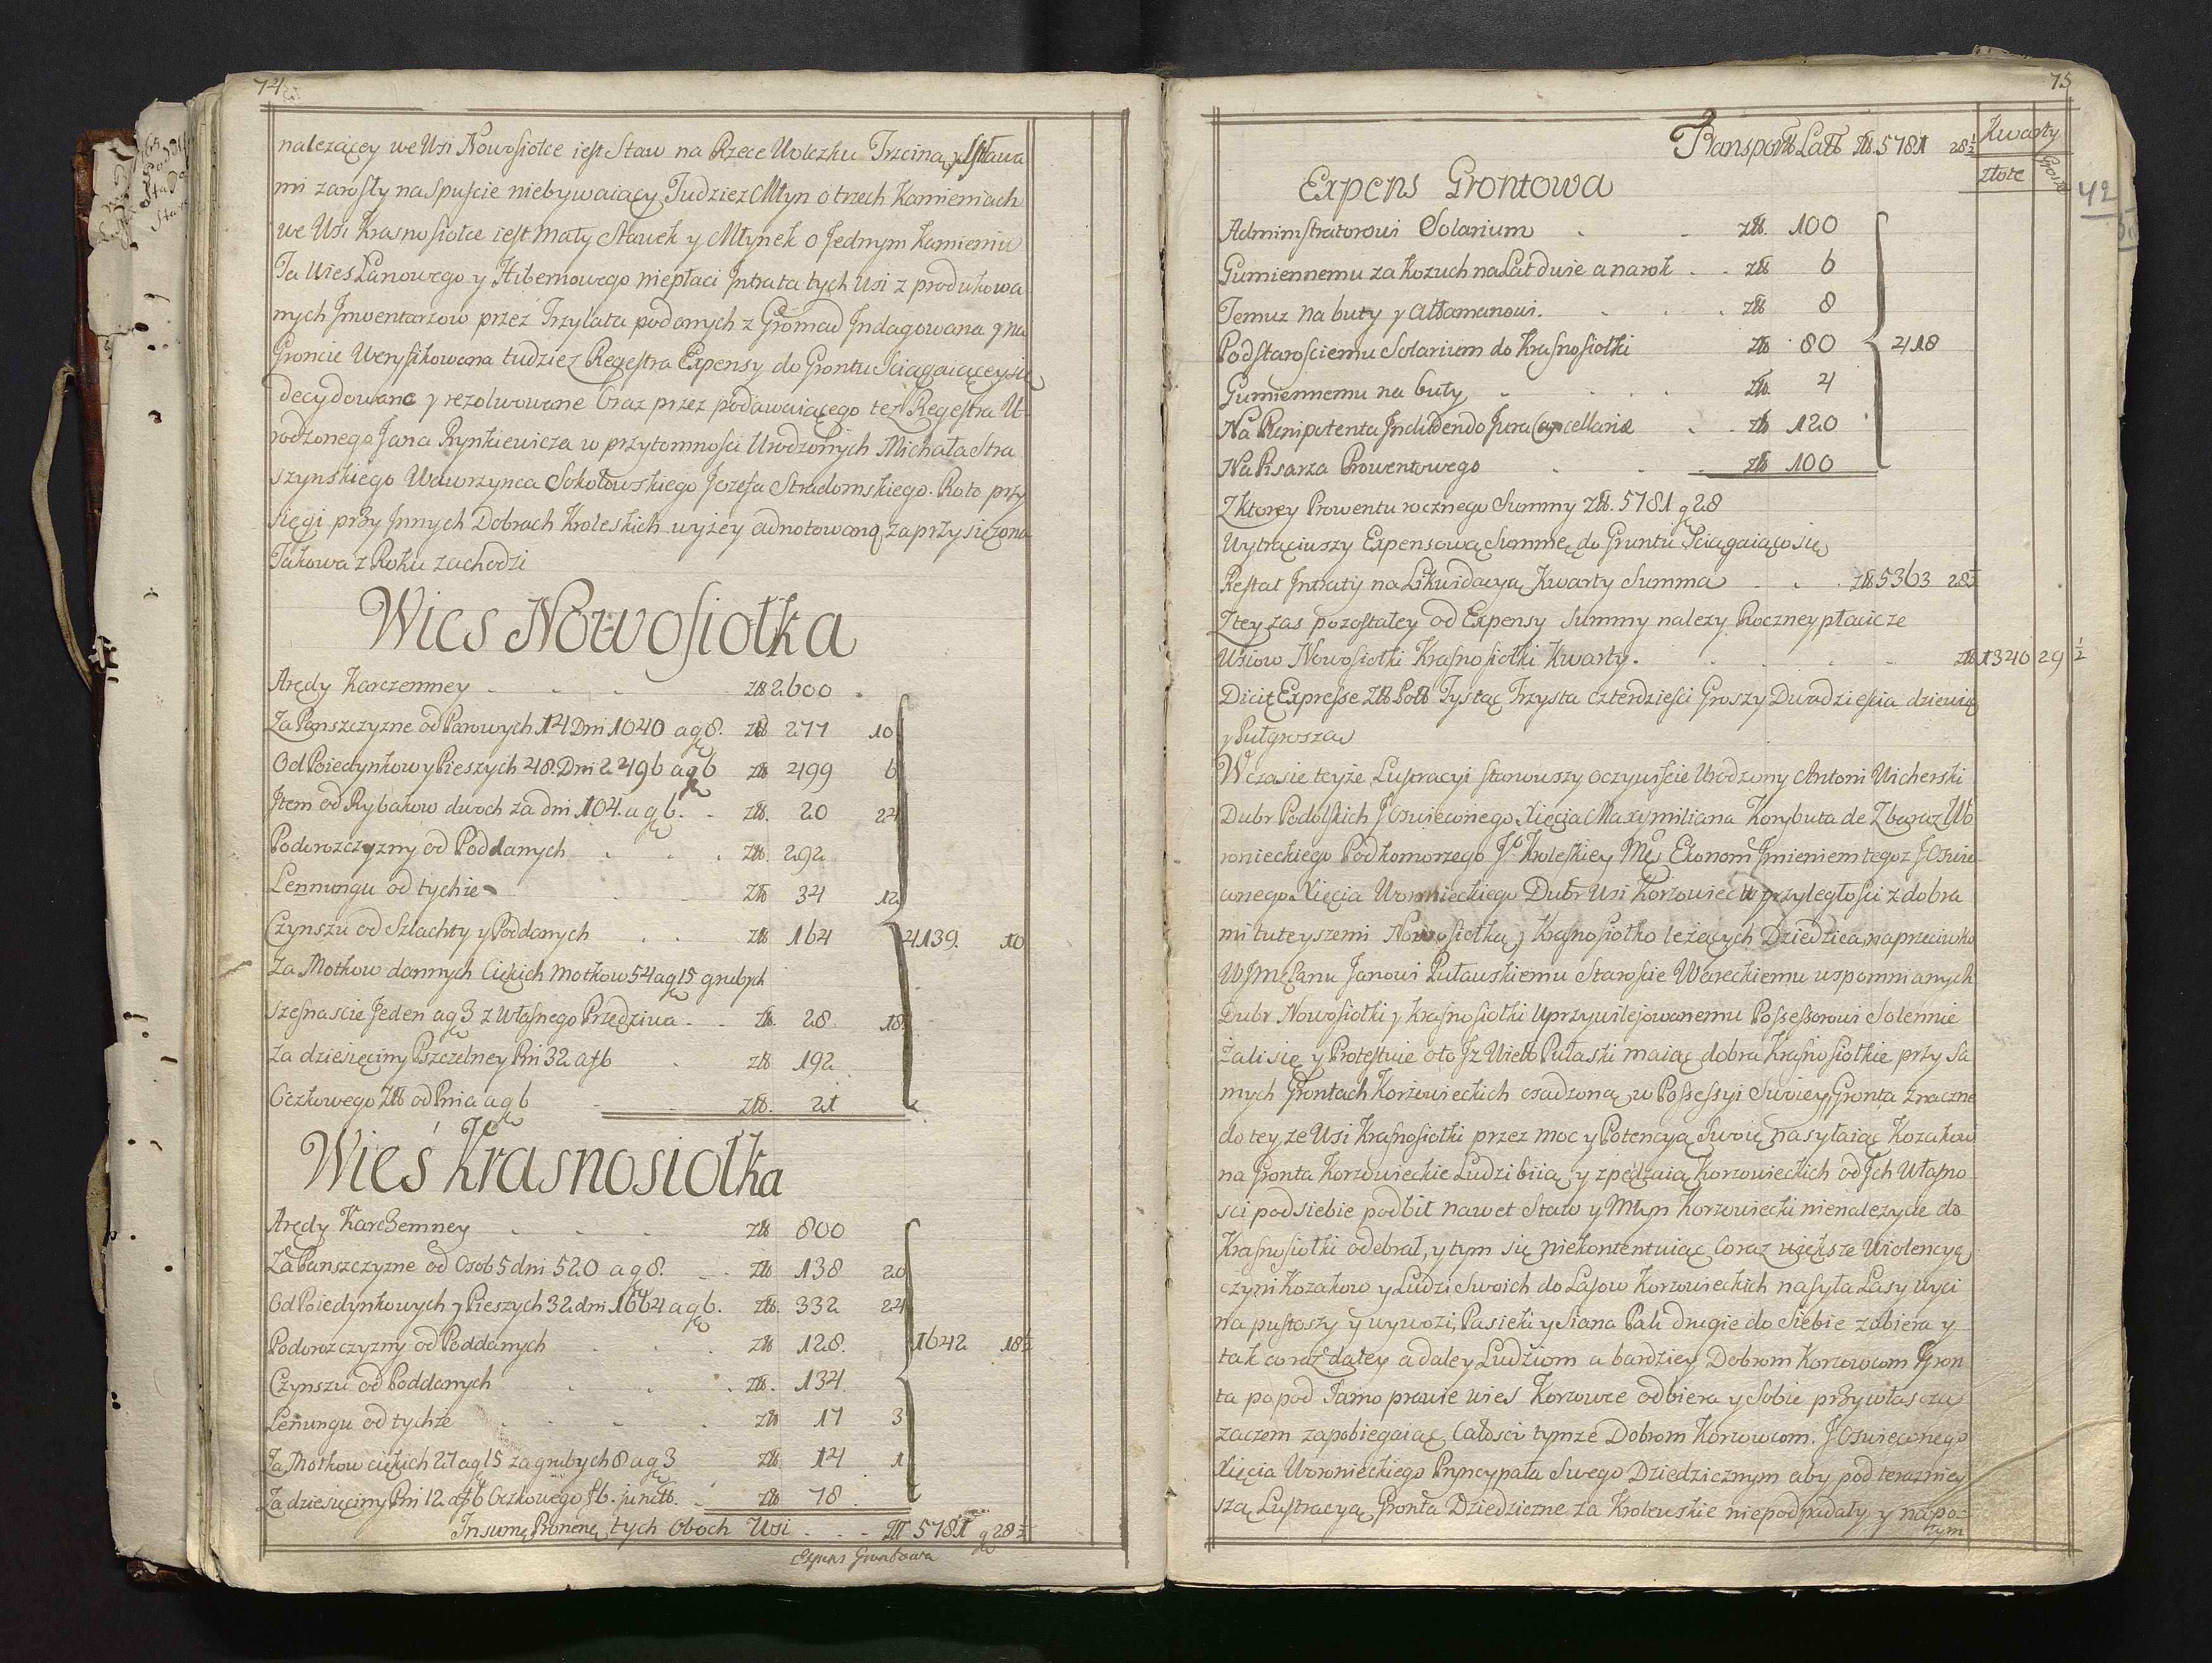 74
należącey we Wsi Nowosiołce iest Staw na Rzece Wolczku Trzciną y Ława
mi zarosły na Spuscie niebywaiący Tudziez Młyn o trzech Kamieniach
we Wsi Krasnosiołce iest Mały Stawek y Młynek o Jednym Kamieniu
Ta Wies Łanowego y Hibernowego niepłaci Intrata tych Wsi z produkowa
nych Inwentarzow przez Trzylata podanych z Gromad Indagowana y na
Groncie Weryfikowana tudziez Regestra Expensy do Grontu Sciągaiącey się
decydowane y rezolwowane Oraz przez podawaiącego tez Regestra U-
rodzonego Jana Rynkiewicza w przytomnosci Urodzonych Michała Stra
szynskiego Wawrzynca Sokołowskiego Jozefa Stradomskiego. Roto przy
sięgi przy Innych Dobrach Kroleskich wyżey adnotowaną zaprzysiężona
Takowa z Roku zachodzi
Wies Nowosiołka
Arędy Karczemney zł 2600
Za Panszczyzne od Parowych 14 Dni 1040 a g 8. zł 277 10
Od Poiedynkow y Pieszych 48. Dni 2496 a g 6 zł 499 6
Item od Rybakow dwoch za dni 104. a g 6. zł. 20 24
Podorozczyzny od Poddanych zł. 292
Lennungu od tychże zł 34 12
Czynszu od Szlachty y Poddanych zł 164 4139. 10
Za Motkow dannych Ciękich motkow 54 a g 15 grubych
szesnascie Jeden a g 3 z własnego Przędziwa zł. 28 18
Za dziesięciny Pszczelney Pni 32 a f 6 zł 192
Oczkowego zł od Pnia a g 6 zł. 21
Wieś Krasnosiołka
Arędy Karczemney zł 800
Za Panszczyzne od Osob 5 dni 520 a g 8. zł 138 20
Od Poiedynkowych y Pieszych 32 dni 1664 a g 6. zł. 332 24
Podorozczyzny od Poddanych zł 128. 1642 18½
Czynszu od Poddanych zł. 134.
Lenungu od tychże zł 17 3
Za Motkow ciękich 27 a g 15 za grubych 8 a g 3 zł. 14 1
Za dziesięciny Pni 12 a f 6 Oczkowego f 6. junctt. zł 78
In sumę tych Oboch Wsi zł 5781 g 28½
Expens Grontowa
75
Transport Latt zł. 5781 28½ Kwarty
złote Grosze
42
Expens Grontowa
Administratorowi Solarium zł. 100
Gumiennemu za kozuch na Lat dwie a na rok zł 6
Temuz na buty y Attamanowi. zł 8
Podstarosciemu Solarium do Krasnosiołki zł 80 418
Gumiennemu na buty zł. 4
Na Plenipotenta Includendo Jura Cancellariæ zł 120
Na Pisarza Prowentowego zł 100
Z ktorey Prowentu rocznego Summy zł. 5781 g 28
Wytrąciwszy Expensową Summę do Gruntu Sciągaiącą się
Restat Intraty na Likwidacyą Kwarty Summa zł 5363 28½
Z tey zas pozostałey od Expensy Summy nalezy Roczney płacic ze
Wsiow Nowosiołki Krasnosiołki Kwarty. zł 1340 29 ½
Dicit Expresse zł Poll Tysiąc Trzysta czterdziesci Groszy Dwadziescia dziewię
y Pułgrosza
W czasie teyże Lustracyi stanowszy oczywiscie Urodzony Antoni Wicherski
Dobr Podolskich J Oswieconego Xięcia Maxymiliana Korybuta de Zbaraz Wo
ronieckiego Podkomorzego J. Kroleskiey Mci Ekonom Imieniem tegoz J Oswie
conego Xięcia Woronieckiego Dobr Wsi Korzowiec w przyległosci z dobra
mi tuteyszemi Nowosiołką y Krasnosiołko leżących Dziedzica naprzeciwko
WJmę Panu Janowi Pułauskiemu Staroscie Wareckiemu wspomnianych
Dobr Nowosiołki y Krasnosiołki Uprzywilejowanemu Possessorowi Solennie
Żali się y Protestuie oto Jz Wielo Pułaski maiąc dobra Krasnosiołkie przy Sa
mych Grontach Korzowieckich osadzoną w Possessyi Swoiey, Gronta znaczne
do tey ze Wsi Krasnosiołki przez moc y Potencyą Swoię nasyłaiąc Kozakow
na Gronta Korzowieckie Ludzi biią y zpędzaią Korzowieckich od Jch Własno
sci pod siebie podbił nawet Staw y Młyn Korzowiecki nienalezyce do
Krasnosiołki odebrał, y tym się niekontentuiąc coraz większe Wiolencyą
czyni Kozakow y Ludzi Swoich do Lasow Korzowieckich nasyła Lasy wyci
na pustoszy y wywozi, Pasieki y Siana Pali drugie do Siebie zabiera y
tak coraz daley a daley Ludziom a bardziey Dobrom Korzowcom Gron
ta popod Samo prawie wies Korzowce odbiera y Sobie przywłaszcza
zaczem zapobiegaiąc Całosci tymze Dobrom Korzowcom. J Oswieconego
Xięcia Woronieckiego Pryncypała Swego Dziedzicznym aby pod terazniey
szą Lustracyą Gronta Dziedziczne za Krolewskie niepodpadały y napo-
tym